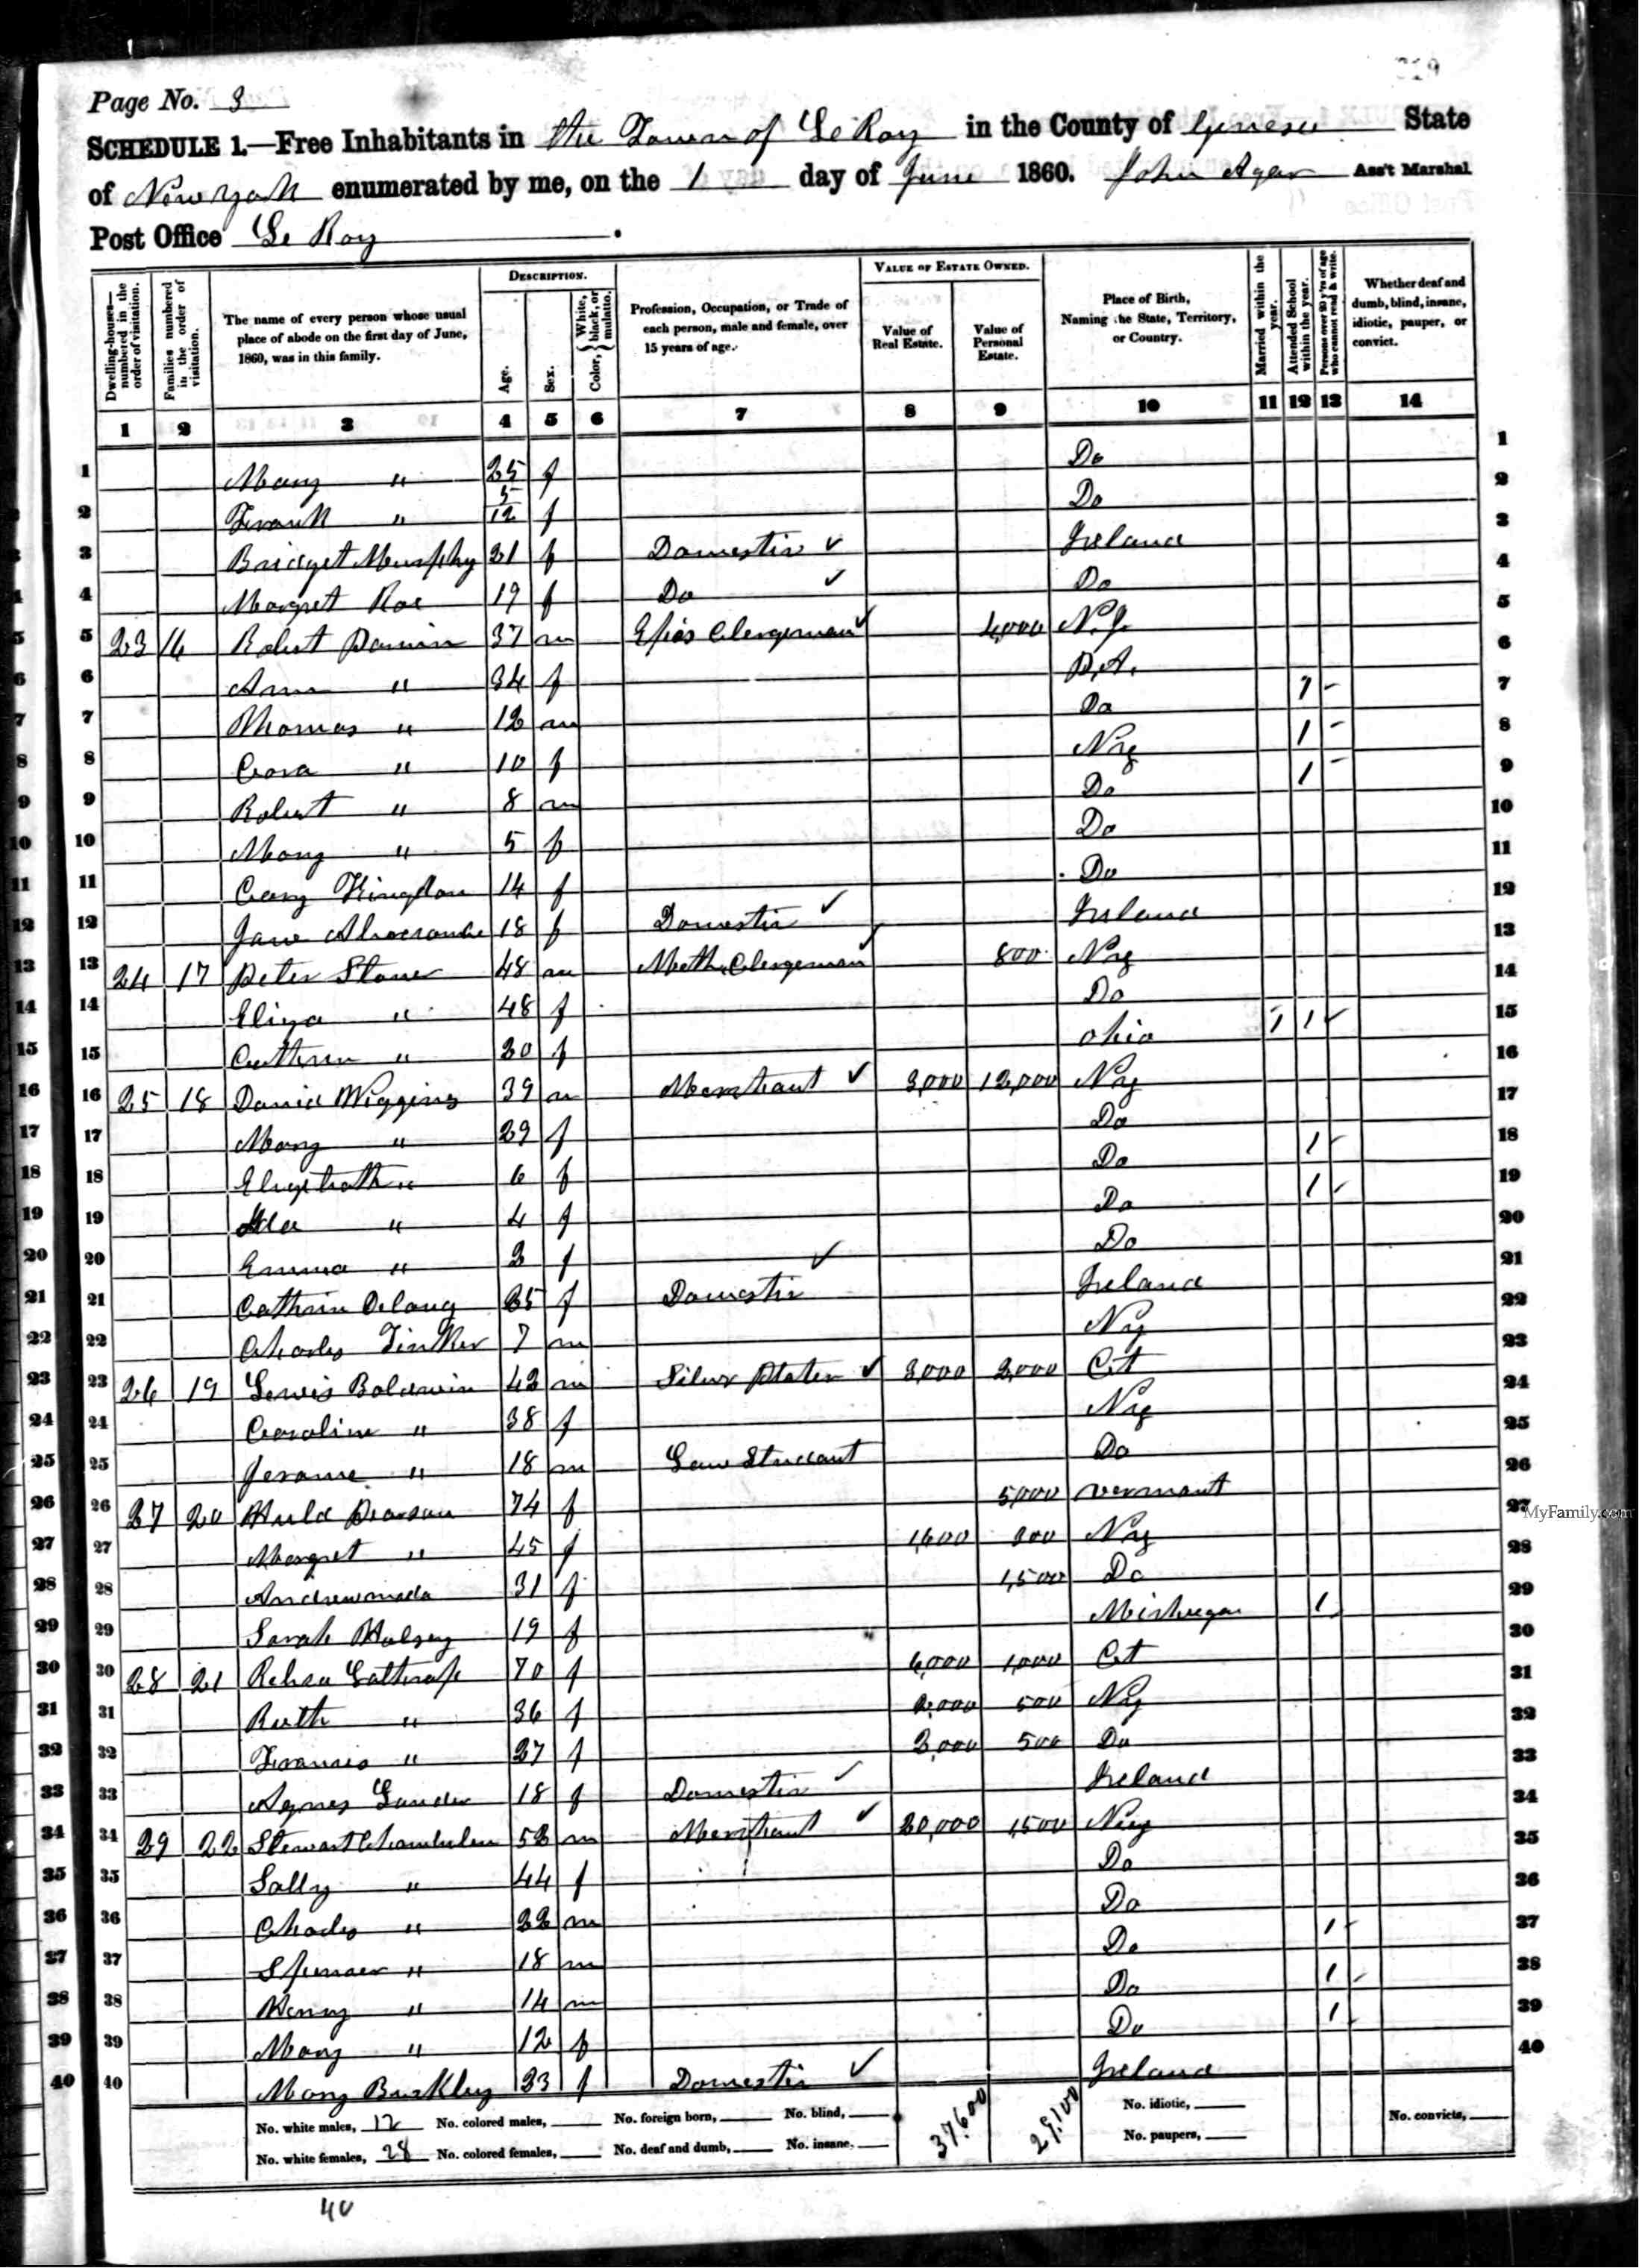 319
Page No. 3
SCHEDULE 1.—Free Inhabitants in the Town of Le Roy in the County of Genesee State
of New York enumerated by me, on the 1 day of June 1860. John Agar Ass't Marshal
Post Office Le Roy.
Dwelling-houses—numbered in the order of visitation.
Families numbered in the order of visitation.
The name of every person whose usual place of abode on the first day of June, 1860, was in this family.
DESCRIPTION.
Age.
Sex.
Color, { White, black, or mulatto.
Profession, Occupation, or Trade of each person, male and female, over 15 years of age.
VALUE OF ESTATE OWNED.
Value of Real Estate.
Value of Personal Estate.
Place of Birth, Naming the State, Territory, or Country.
Married within the year.
Attended School within the year.
Persons over 20 y'rs of age who cannot read & write.
Whether deaf and dumb, blind, insane, idiotic, pauper, or convict.
1 2 3 4 5 6 7 8 9 10 11 12 13 14
1 Mary " 25 f Do 1
2 Frank " 5/12 f Do 2
3 Bridget Murphy 21 f Domestic ✓ Ireland 3
4 Margret Roe 19 f Do ✓ Do 4
5 23 16 Robert 37 m Epis Clergeman ✓ 4,000 N.J. 5
6 Ann " 34 f 6
7 Thomas " 12 m Do 1 7
8 Cora " 10 f Ny 1 8
9 Robert " 8 m Do 1 9
10 Mary " 5 f Do 10
11 Kingdon 14 f Do 11
12 Jane 18 f Domestic ✓ Ireland 12
13 24 17 Peter Stover 48 m Meth. Clergeman ✓ 800 Ny 13
14 Eliza " 48 f Do 14
15 Cathrin " 20 f Ohio 1 1 15
16 25 18 David Wiggins 39 m Merchant ✓ 3,000 12,000 Ny 16
17 Mary " 29 f Do 17
18 " 6 f Do 1 18
19 Ida " 4 f Do 1 19
20 Emma " 2 f ✓ Do 20
21 Cathrin Delany 25 f Domestic Ireland 21
22 Charles Tinker 7 m Ny 22
23 26 19 Lewis Baldwin 42 m Silver Plater ✓ 3,000 2,000 Ct 23
24 Caroline " 38 f Ny 24
25 Jerome " 18 m Law Student Do 25
26 27 20 Huld Pearson 74 f 5,000 Vermont 26
27 Margret " 45 f 1,600 300 Ny 27
28 31 f 1,500 Do 28
29 Sarah Halsey 19 f Mishegan 1 29
30 28 21 Lathrop 70 f 6,000 1,000 Ct 30
31 Ruth " 36 f 2,000 500 Ny 31
32 Francis " 27 f 2,000 500 Do 32
33 Agnes 18 f Domestic ✓ Ireland 33
34 29 22 Stewart Chamberlen 52 m Merchant ✓ 20,000 1,500 Ny 34
35 Sally " 44 f Do 35
36 Charles " 22 m Do 36
37 Spencer " 18 m Do 1 37
38 Henry " 14 m Do 1 38
39 Mary " 12 f Do 1 39
40 Mary Buckley 23 f Domestic ✓ Ireland 40
No. white males, 12 No. colored males, No. foreign born, No. blind, 37,600 29,100 No. idiotic, No. convicts,
No. white females, 28 No. colored females, No. deaf and dumb, No. insane, No. paupers,
40
MyFamily.com